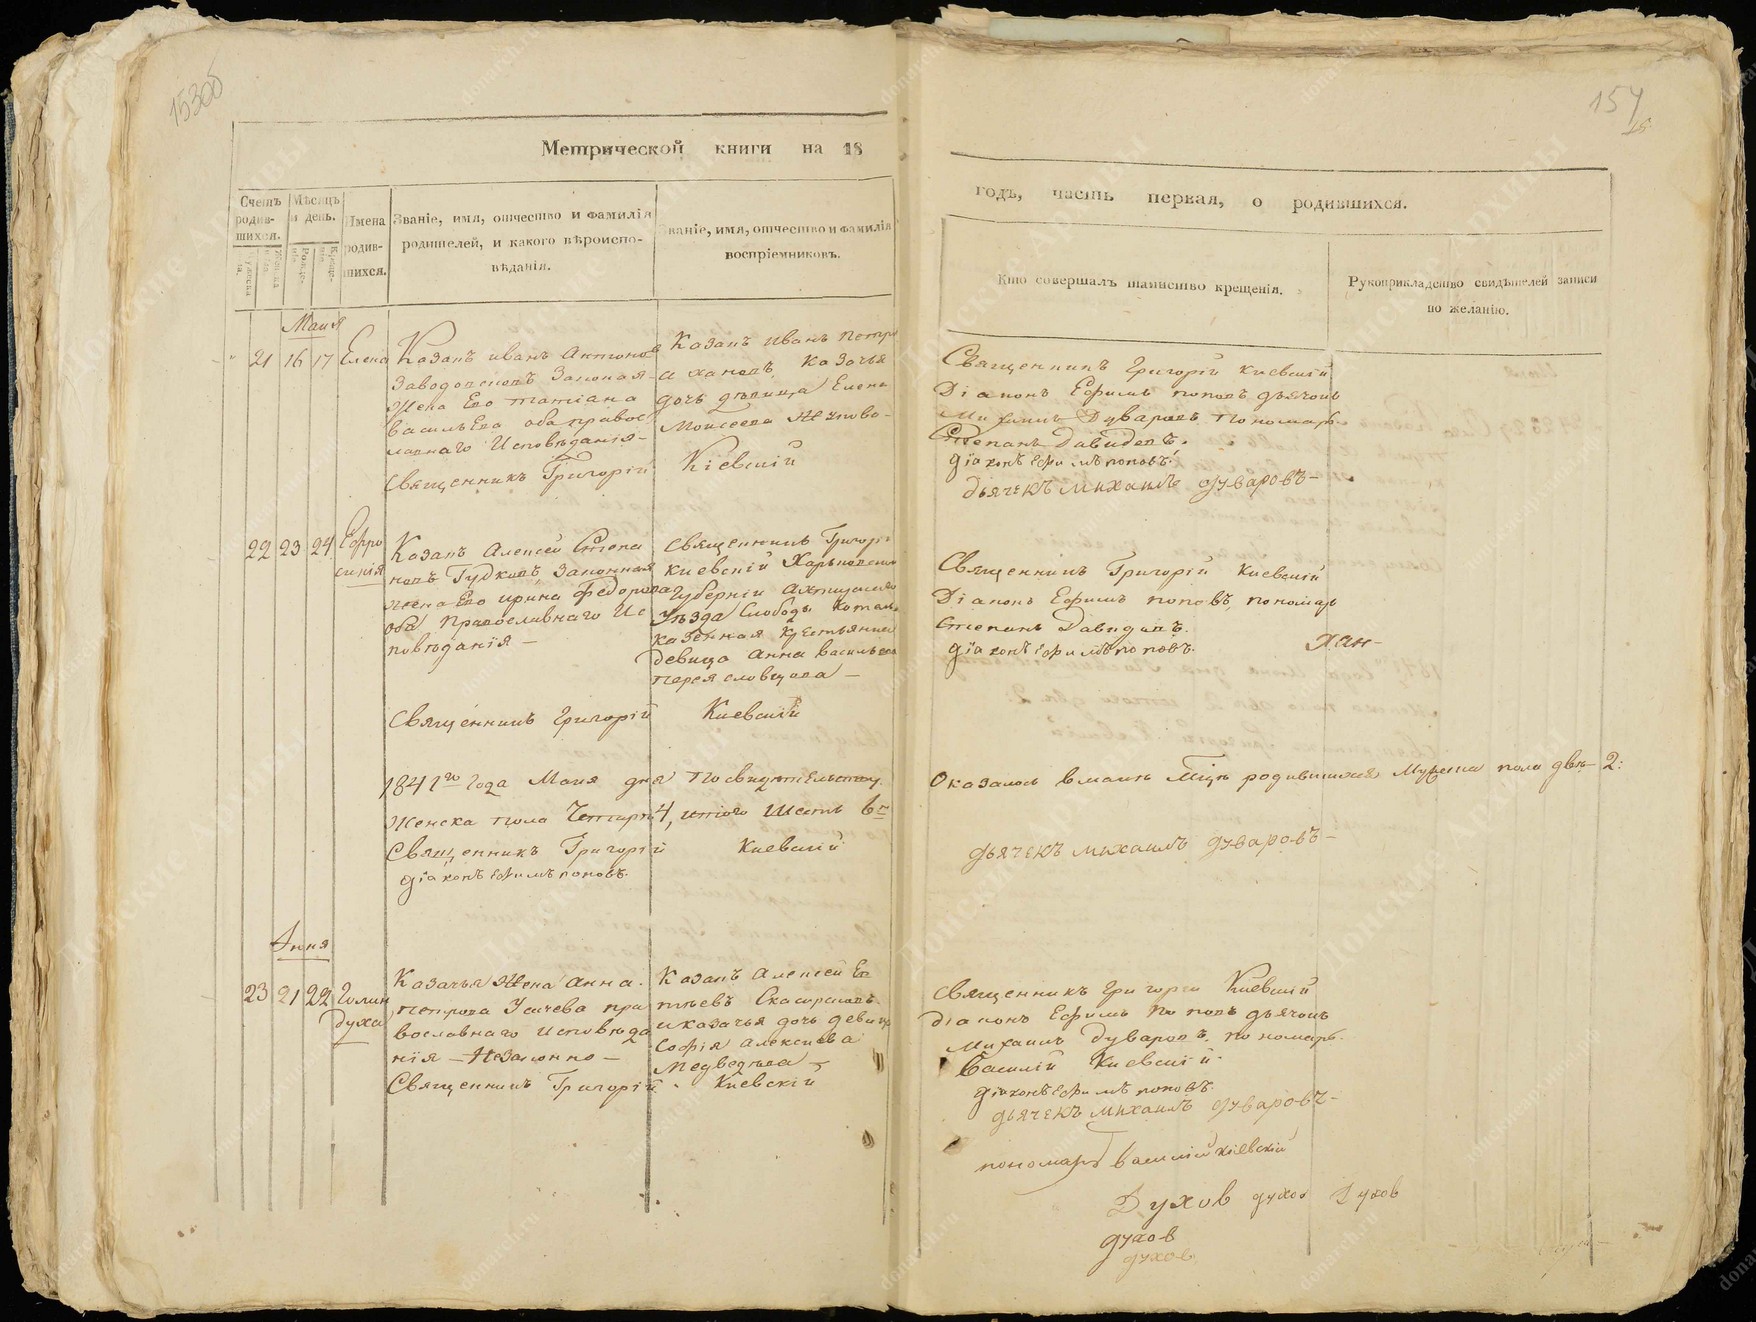 153об
157
Метрической книги на 18
годъ, часть первая, о родившихся.
Счетъ родив-шихся.
Мѣсяцъ и день.
Имена родив-шихся.
Званіе, имя, отчество и фамилія
родителей, и какого вѣроиспо-
вѣданія.
Званіе, имя, отчество и фамилія
воспріемниковъ.
Кто совершалъ таинство крещенія.
Рукоприкладство свидѣтелей записи
по желанію.
Маия
21 16 17 Елена
Казакъ иванъ Антонов
Заводсковъ Законая
Жена Его татіана
васильева оба правос
лавнаго Исповѣданія-
Священникъ Григорій Кіевскій
Казакъ Иванъ Петро
Казачья
дочь дѣвица Елена
Моисеева
Священникъ Григорій Киевскій
Діаконъ Ефимъ поповъ дьячокъ
Михаилъ Дуваровъ Пономарь
Степанъ Давидовъ.
діаконъ Ефимъ поповъ.
дьячекъ михаилъ дуваровъ-
22 23 24 Ефро
синія
Казакъ Алексей Степа
новъ Гудковъ Законная
жена Его ирина федорова
оба Православнаго Ис
повѣданія-
Священникъ Григорі
Киевскій Харьковской
Губерніи Ахтырскаго
Уѣзда Слободы
казенная Крестьянка
девица анна васильева
Священникъ Григорій Киевскій
Священникъ Григорій Киевскій
Діаконъ Ефимъ поповъ, пономарь
Степанъ Давидовъ.
діаконъ Ефимъ поповъ.
Хан-
1841го Года Маия дня По свидѣтельству Оказалось в маиѣ Мцѣ родившихся Мужеска пола двѣ- 2:
Женска пола Четыри 4, итого Шесть 6ть
Священникъ Григорій Киевскій
діаконъ Ефимъ поповъ.
дьячекъ михаилъ дуваровъ-
Iюня
23 21 22 Голин
духа
Казачья Жена анна
петрова Усачева пра
вославнаго исповѣда
нія - Незаконно-
Священникъ Григорій Киевскій
Казакъ Алексей Ев
и казачья дочь девица
Софія Алексиева
Медведѣва-
Священникъ Григорій Киевскій
Діаконъ Ефимъ Поповъ дьячокъ
Михаилъ Дуваровъ, пономарь.
Василій Киевскій.
діаконъ Ефимъ поповъ.
дьячекъ михаилъ дуваровъ-
пономарь Василій кіевскій
Духов духов Духов
духов
духов